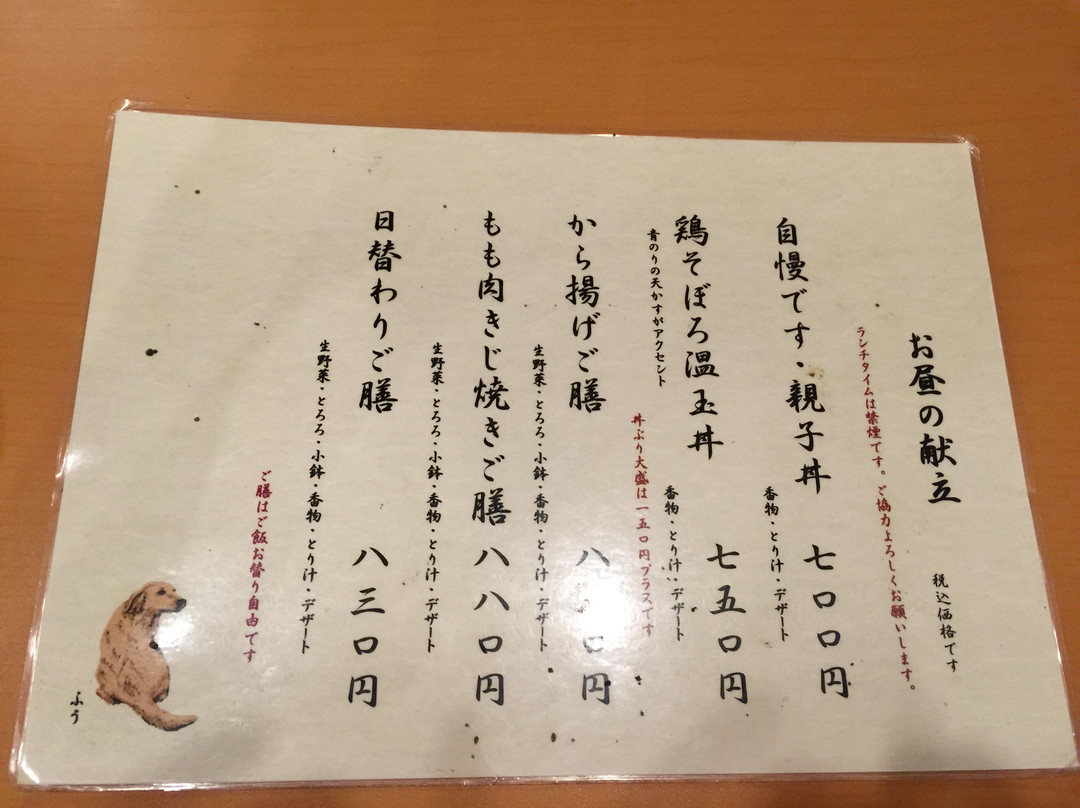 お昼の献立
税込価格です
ランチタイムは禁煙です。ご協力よろしくお願いします。
自慢です・親子丼 七〇〇円
香物・とり汁・デザート
鶏そぼろ温玉丼 七五〇円
青のりの天かすがアクセント
香物・とり汁・デザート
丼ぶり大盛は一五〇円プラスです
から揚げご膳 八 〇円
生野菜・とろろ・小鉢・香物・とり汁・デザート
もも肉きじ焼きご膳 八八〇円
生野菜・とろろ・小鉢・香物・とり汁・デザート
日替わりご膳 八三〇円
生野菜・とろろ・小鉢・香物・とり汁・デザート
ご膳はご飯お替り自由です
ふう